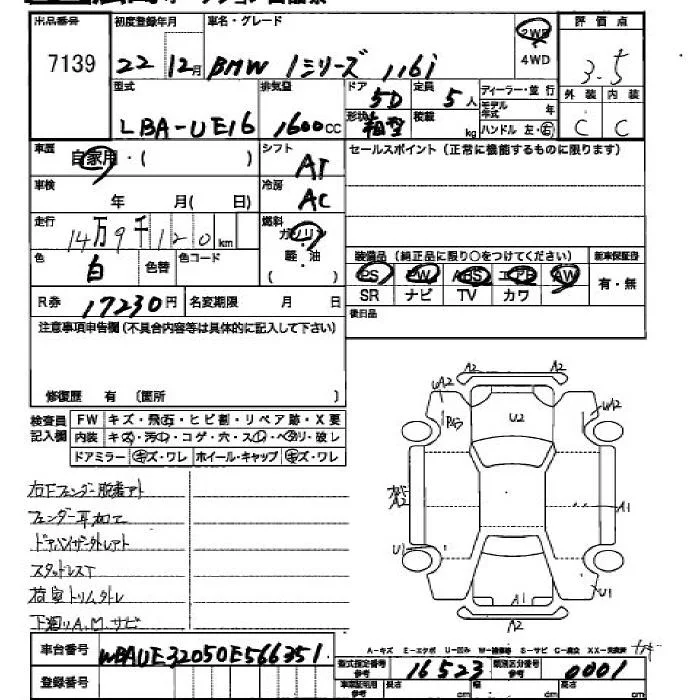 出品番号 初度登録年月 車名・グレード 2WD 評価点
7139 22 12月 BMW 1シリーズ 116i 4WD 3.5
型式 排気量 ドア 5D 定員 5人 ディーラー・並行 外装 内装
LBA-UE16 1600cc 形状 箱型 積載 kg モデル年式 年 C C
ハンドル 左・右
車歴 自家用・( ) シフト AT セールスポイント(正常に機能するものに限ります)
車検 年 月( 日) 冷房 AC
走行 14万9千120km 燃料 ガソリン 軽・油 ( )
色 白 色替 色コード 装備品(純正品に限り○をつけてください) 新車保証書
PS PW ABS エアB AW 有・無
R券 17230円 名変期限 月 日 SR ナビ TV カワ
注意事項申告欄(不具合内容等は具体的に記入して下さい) 後日品
修復歴 有 (箇所 )
検査員記入欄 FW キズ・飛石・ヒビ割・リペア跡・X要
内装 キズ・汚れ・コゲ・穴・スレ・ヘタリ・破レ
ドアミラー キズ・ワレ ホイール・キャップ キズ・ワレ
A2 A2
UA2 U2 UA2
A2 A1
U1 A1 U1
A2
右Fフェンダー脱着アト
フェンダー耳加工
ドアバイザー外レアト
スタッドレスT
荷室トリム外レ
下廻りA.M.サビ
A-キズ E-エクボ U-凹み W-補修跡 S-サビ C-腐食
車台番号 WBAUE32050E566351
登録番号 型式指定番号 参考 16523 類別区分番号 参考 0001
車庫証明用 参考 長さ cm 幅 cm 高さ cm